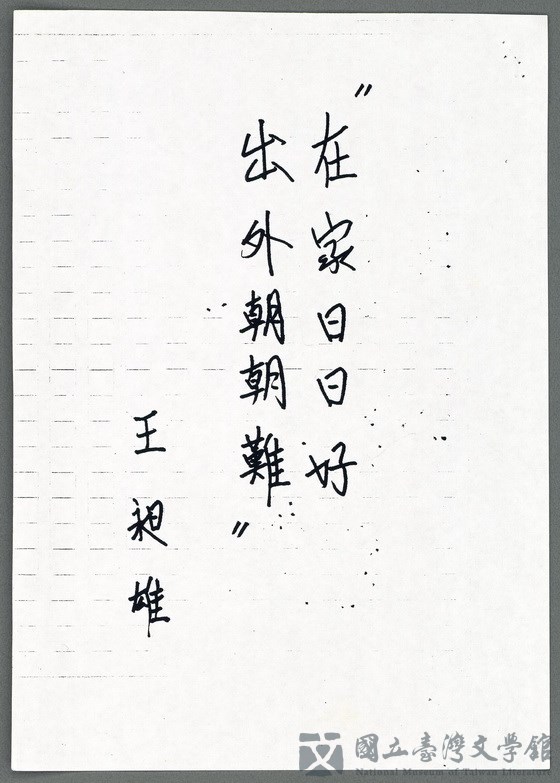 "在家日日好
出外朝朝難"
王昶雄
國立臺灣文學館
National Museum of Taiwan Literature